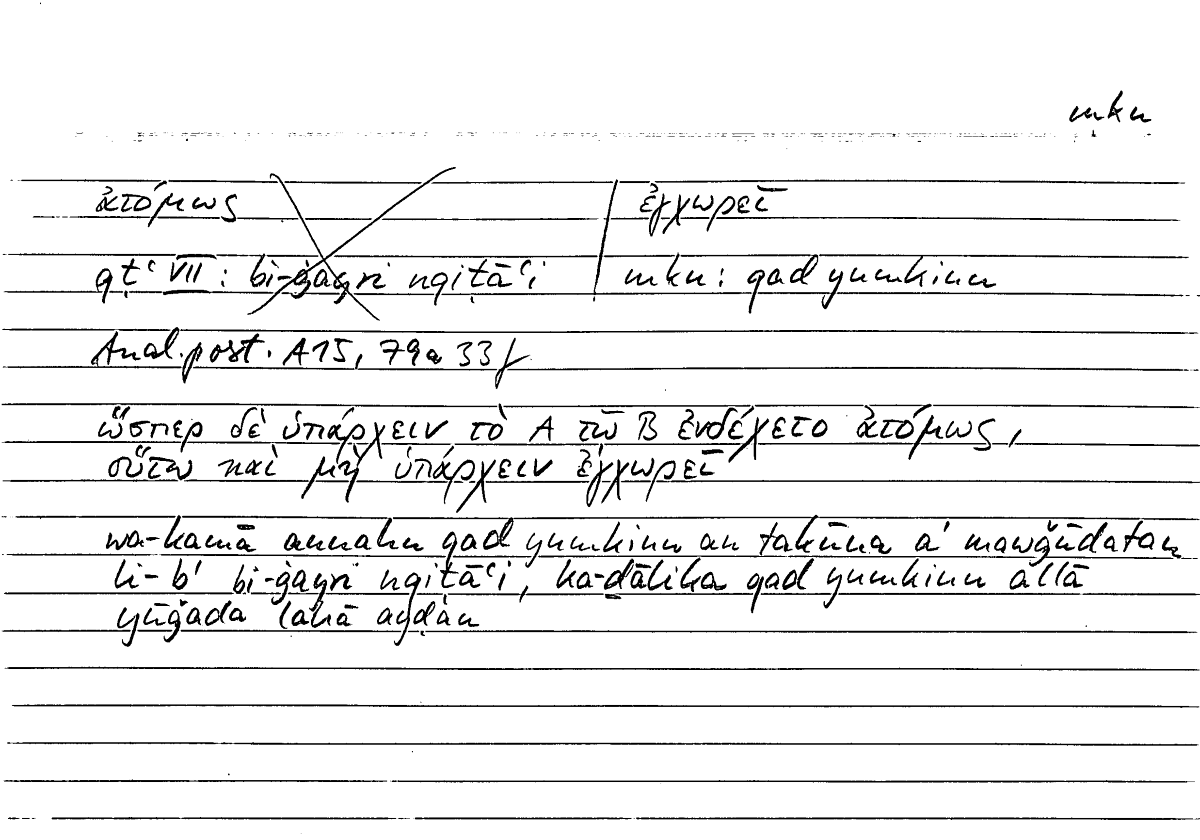 mkn
ἀτόμως | ἐγχωρεῖ
qṭʿ VII : bi-ġayri nqiṭāʿi | mkn : qad yumkinu
Anal. post. A 15, 79a 33 f
ὥσπερ δὲ ὑπάρχειν τὸ A τῷ B ἐνδέχετο ἀτόμως,
οὕτω καὶ μὴ ὑπάρχειν ἐγχωρεῖ
wa-kamā annahu qad yumkinu an takūna a' mawǧūdatan
li-b' bi-ġayri nqiṭāʿi, ka-ḏālika qad yumkinu allā
yūǧada lahā ayḍan